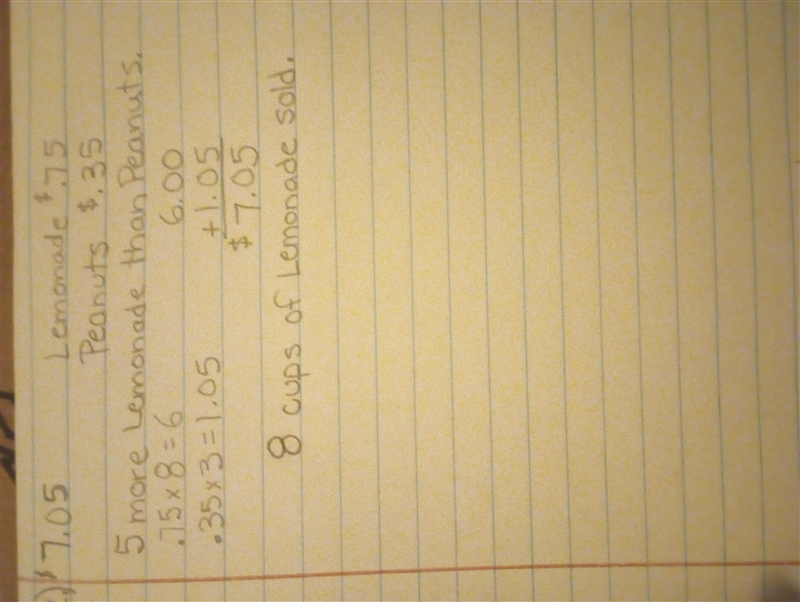 ) $7.05 Lemonade $.75
Peanuts $.35
5 more Lemonade than Peanuts.
.75 x 8 = 6 6.00
.35 x 3 = 1.05 + 1.05
$ 7.05
8 cups of Lemonade sold.